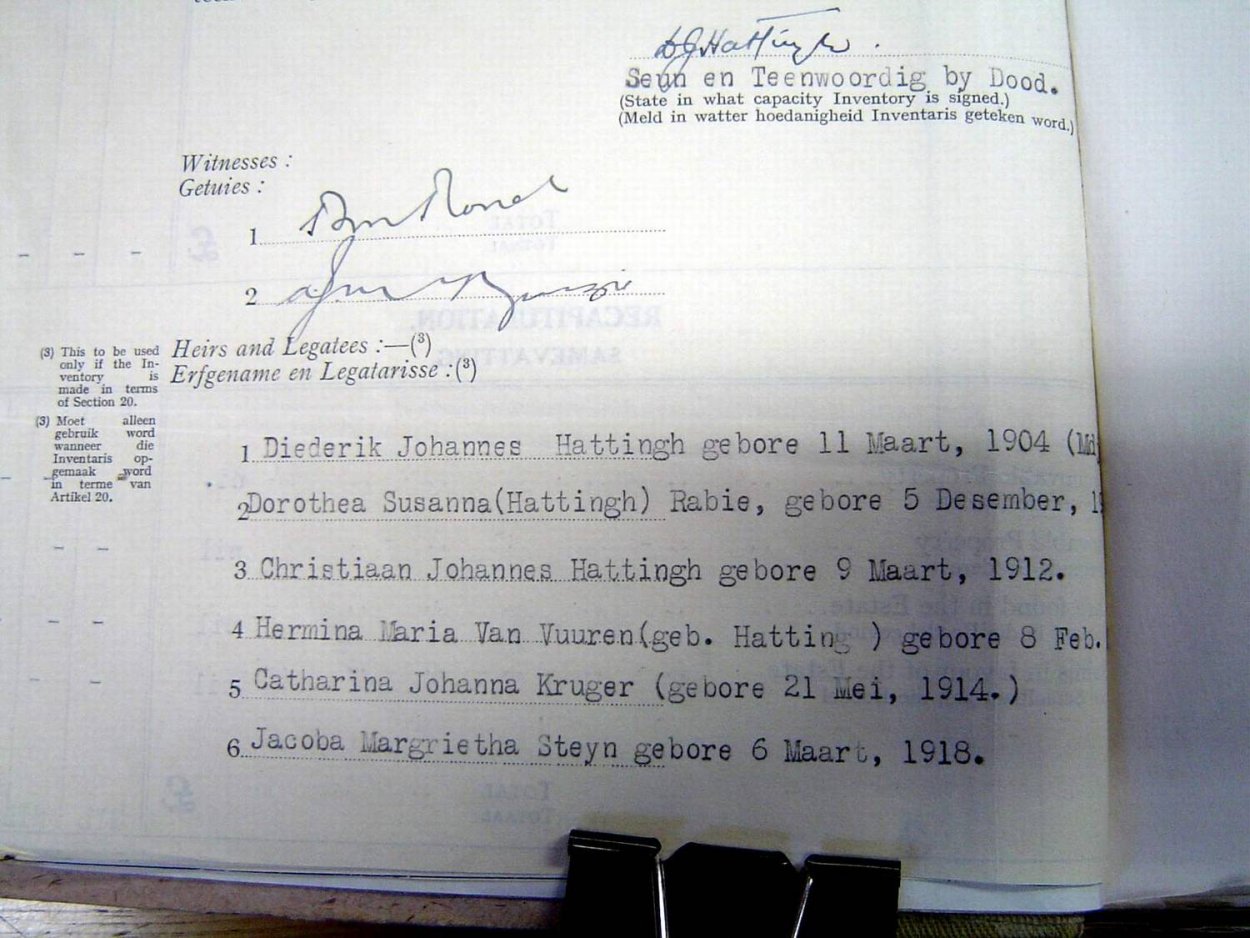 DJHattingh.
Seun en Teenwoordig by Dood.
(State in what capacity Inventory is signed.)
(Meld in watter hoedanigheid Inventaris geteken word.)
Witnesses :
Getuies :
1
2
Heirs and Legatees :—(3)
Erfgename en Legatarisse :(3)
(3) This to be used
only if the In-
ventory is
made in terms
of Section 20.
(3) Moet alleen
gebruik word
wanneer die
Inventaris op-
gemaak word
in terme van
Artikel 20.
1 Diederik Johannes Hattingh gebore 11 Maart, 1904
2 Dorothea Susanna(Hattingh) Rabie, gebore 5 Desember,
3 Christiaan Johannes Hattingh gebore 9 Maart, 1912.
4 Hermina Maria Van Vuuren(geb. Hatting ) gebore 8 Feb.
5 Catharina Johanna Kruger (gebore 21 Mei, 1914.)
6 Jacoba Margrietha Steyn gebore 6 Maart, 1918.